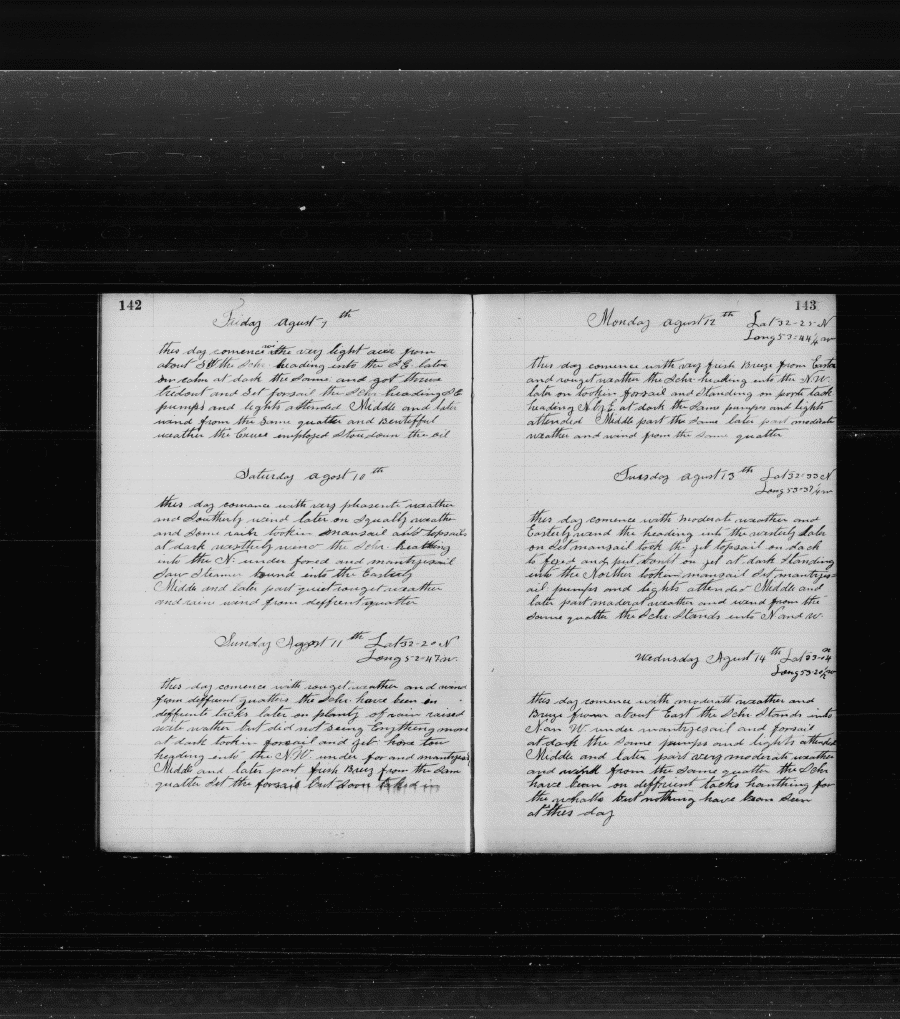 142
Friday Agust 9 th
this day comence with the very light aeir from
about SW the Schr heading into the SE later
on calm at dark the Same and got three
redout and Set forsail the Schr heading SE
pumps and lights attended Middle and later
wind from the Same quatter and Beutifful
weather the Crues employed Stou down the oil
Saturday agost 10 th
this day comance with very pleasente weather
and Southerly wind later on Squally weather
and Some rain tookin mansail and topsails
at dark westerly wind the Schr heathing
into the N. under fored and mantzesail
Saw Steamer bound into the Easterly
Midde and later part quiet rouget weather
and rain wind from deffrent quatter
Sunday Agost 11 th Lat 32-20 N
Long 52-47 w.
this day comence with rouget weather and wind
from deffrent quatters the Schr have been on
deffrente tacks later on planty of rain raised
write wather but did not Seing Enything more
at dark tookin forsail and Jeb have tou
heading into the N.W. under for and mantzesail
Middle and later part fresh Breez from the Same
quatter Set the forsail but Soon taked in
143
Monday agust 12 th Lat 32-25-N
Long 53-44 1/4 w
this day comence with very fresh Breze from Easter
and rouget weather the Schr heading into the N.W.
late on tookin forsail and Standing on porte tack
heading N.b.E. at dark the Same pumpes and lights
attended Middle part the Same later part moderate
weather and wind from the Same quatter
Tuesday agust 13 th Lat 32-33 N
Long 53-37 1/4 w
this day comence with moderate weather and
Easterly wand the heading into the westerly later
on Set mansail took the jet topsail on dack
to fexed and put don't on jet at dark Standing
into the Norther tookin mansail Set mantzes
ail pumpes and lights attended Middle and
later part maderat weather and wind from the
Same quatter the Schr Stands into N and W.
Wednesday Agust 14 th Lat 33-04 N
Long 53-20 1/2 w
this day comence with moderatt weather and
Breze from about East the Schr Stands into
N an W. under mantzesail and forsail
at dark the Same pumps and lights attended
Middle and later part very moderate weather
and wind from the Same quatter the Schr
have been on deffrient tacks hanthing for
the whalls but nothing have bean Seen
at thes day